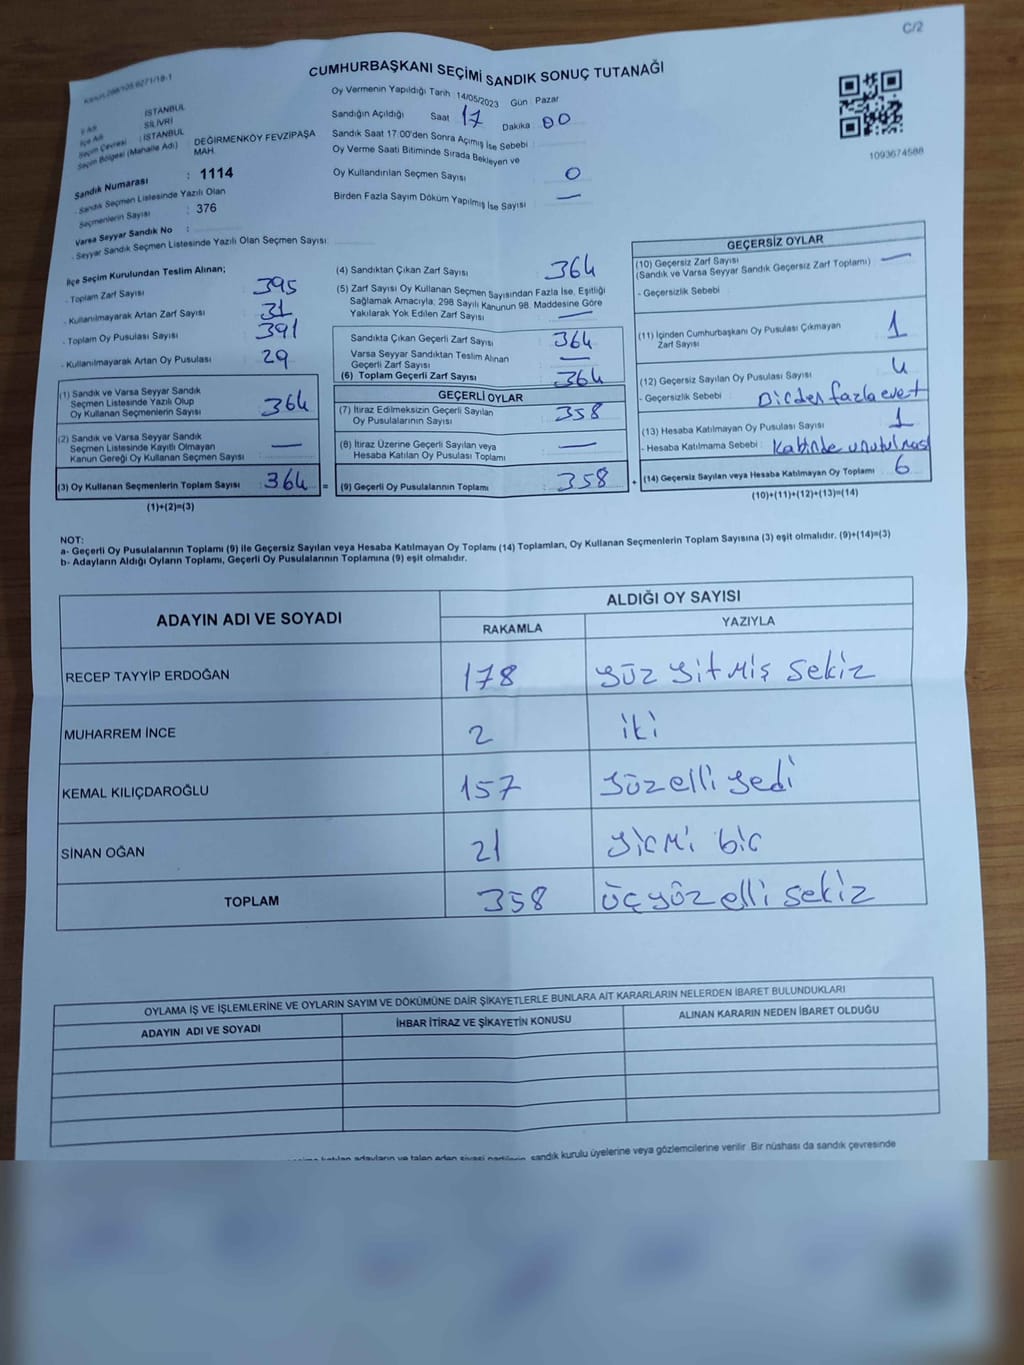 C/2
CUMHURBAŞKANI SEÇİMİ SANDIK SONUÇ TUTANAĞI
Oy Vermenin Yapıldığı Tarih 14/05/2023 Gün Pazar
Sandığın Açıldığı Saat 17 Dakika 00
Sandık Saat 17:00'den Sonra Açılmış İse Sebebi :
Oy Verme Saati Bitiminde Sırada Bekleyen ve
Oy Kullandırılan Seçmen Sayısı : 0
Birden Fazla Sayım Döküm Yapılmış İse Sayısı : —
1093674588
İl Adı : İSTANBUL
İlçe Adı : SİLİVRİ
Seçim Çevresi : İSTANBUL
Seçim Bölgesi (Mahalle Adı) : DEĞİRMENKÖY FEVZİPAŞA
MAH.
Sandık Numarası : 1114
- Sandık Seçmen Listesinde Yazılı Olan
Seçmenlerin Sayısı : 376
Varsa Seyyar Sandık No :
- Seyyar Sandık Seçmen Listesinde Yazılı Olan Seçmen Sayısı:
İlçe Seçim Kurulundan Teslim Alınan;
- Toplam Zarf Sayısı : 395
- Kullanılmayarak Artan Zarf Sayısı : 31
- Toplam Oy Pusulası Sayısı : 391
- Kullanılmayarak Artan Oy Pusulası : 29
(1) Sandık ve Varsa Seyyar Sandık
Seçmen Listesinde Yazılı Olup
Oy Kullanan Seçmenlerin Sayısı : 364
(2) Sandık ve Varsa Seyyar Sandık
Seçmen Listesinde Kayıtlı Olmayan
Kanun Gereği Oy Kullanan Seçmen Sayısı : —
(3) Oy Kullanan Seçmenlerin Toplam Sayısı : 364 =
(1)+(2)=(3)
(4) Sandıktan Çıkan Zarf Sayısı : 364
(5) Zarf Sayısı Oy Kullanan Seçmen Sayısından Fazla İse, Eşitliği
Sağlamak Amacıyla; 298 Sayılı Kanunun 98. Maddesine Göre
Yakılarak Yok Edilen Zarf Sayısı : —
Sandıkta Çıkan Geçerli Zarf Sayısı : 364
Varsa Seyyar Sandıktan Teslim Alınan
Geçerli Zarf Sayısı : —
(6) Toplam Geçerli Zarf Sayısı : 364
GEÇERLİ OYLAR
(7) İtiraz Edilmeksizin Geçerli Sayılan
Oy Pusulalarının Sayısı : 358
(8) İtiraz Üzerine Geçerli Sayılan veya
Hesaba Katılan Oy Pusulası Toplamı : —
(9) Geçerli Oy Pusulalarının Toplamı : 358 +
GEÇERSİZ OYLAR
(10) Geçersiz Zarf Sayısı : —
(Sandık ve Varsa Seyyar Sandık Geçersiz Zarf Toplamı)
- Geçersizlik Sebebi :
(11) İçinden Cumhurbaşkanı Oy Pusulası Çıkmayan
Zarf Sayısı : 1
(12) Geçersiz Sayılan Oy Pusulası Sayısı : 4
- Geçersizlik Sebebi : Birden fazla evet
(13) Hesaba Katılmayan Oy Pusulası Sayısı : 1
- Hesaba Katılmama Sebebi : Kabinde unutulması
(14) Geçersiz Sayılan veya Hesaba Katılmayan Oy Toplamı : 6
(10)+(11)+(12)+(13)=(14)
NOT:
a- Geçerli Oy Pusulalarının Toplamı (9) ile Geçersiz Sayılan veya Hesaba Katılmayan Oy Toplamı (14) Toplamları, Oy Kullanan Seçmenlerin Toplam Sayısına (3) eşit olmalıdır. (9)+(14)=(3)
b- Adayların Aldığı Oyların Toplamı, Geçerli Oy Pusulalarının Toplamına (9) eşit olmalıdır.
ADAYIN ADI VE SOYADI ALDIĞI OY SAYISI
RAKAMLA YAZIYLA
RECEP TAYYİP ERDOĞAN 178 yüz yitmiş sekiz
MUHARREM İNCE 2 iki
KEMAL KILIÇDAROĞLU 157 yüz elli yedi
SİNAN OĞAN 21 yirmi bir
TOPLAM 358 üçyüz elli sekiz
OYLAMA İŞ VE İŞLEMLERİNE VE OYLARIN SAYIM VE DÖKÜMÜNE DAİR ŞİKAYETLERLE BUNLARA AİT KARARLARIN NELERDEN İBARET BULUNDUKLARI
ADAYIN ADI VE SOYADI İHBAR İTİRAZ VE ŞİKAYETİN KONUSU ALINAN KARARIN NEDEN İBARET OLDUĞU
katılan adayların ve talep eden siyasi partilerin, sandık kurulu üyelerine veya gözlemcilerine verilir. Bir nüshası da sandık çevresinde